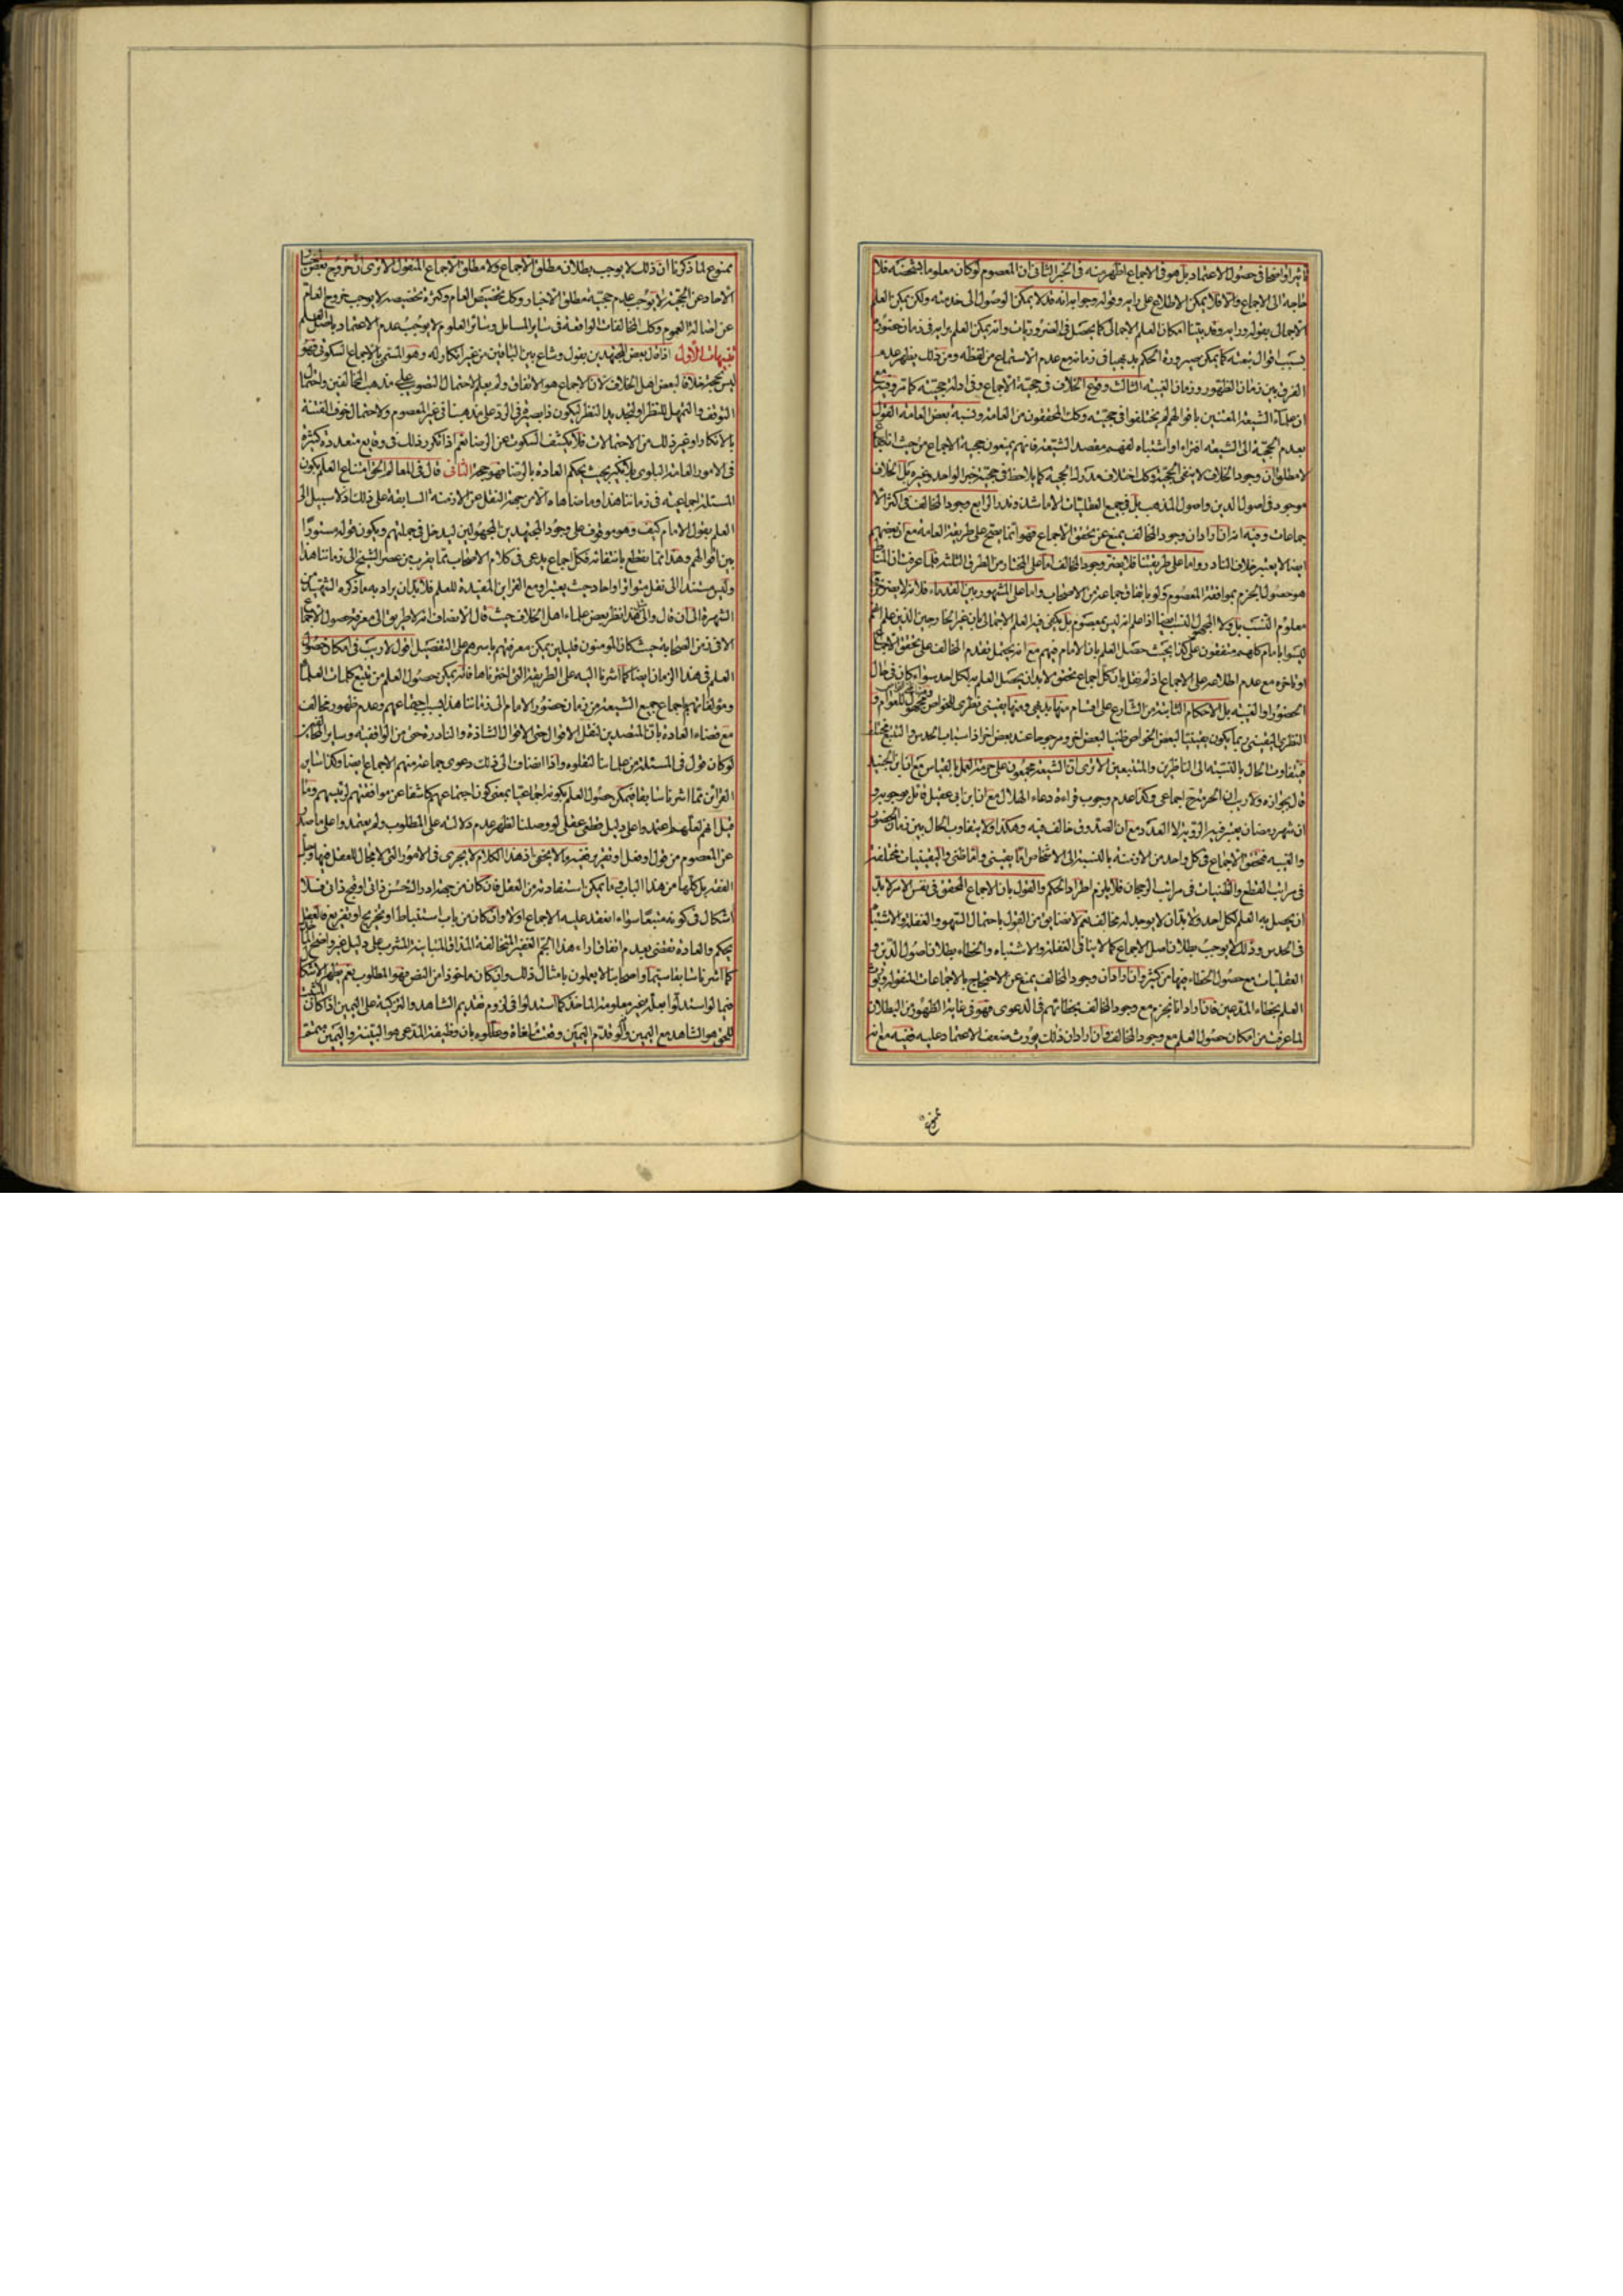 تاثيرا واضحا في حصول الاعتماد بل هو في الاجماع اظهر منه في الخبر الثاني ان المعصوم لو كان معلوما بشخصه فلا
حاجة الى الاجماع والا فلا يمكن الاطلاع على رايه وقوله وجوابه انه قد لا يمكن الوصول الى خدمته ولكن يمكن العلم
الاجمالي بقوله ورايه وقد بينا امكان العلم الاجمالي كما يحصل في الضروريات وانه يمكن العلم برايه في زمان حضوره
بسبب اقوال تبعته كما يمكن صيرورة الحكم بديهيا في زمانه مع عدم الاستماع من لفظه ومن ذلك يظهر عدم
الفرق بين زمان الظهور وزمان الغيبة الثالث وقوع الخلاف في حجية الاجماع وفي ادلة حجيته كما مر وفيه مع
ان علماء الشيعة المعتنين باقوالهم لم يختلفوا في حجيته وكك المحققون من العامة ونسبة بعض العامة القول
بعدم الحجية الى الشيعة افتراء او اشتباه لفهم مقصد الشيعة فانهم يمنعون حجية الاجماع من حيث انه اجماع
لا مطلقا ان وجود الخلاف لا ينفي الحجية وكك اختلاف مدرك الحجية كما يلاحظ في حجية خبر الواحد وغيره بل الخلاف
موجود في اصول الدين واصول المذهب بل في جميع العقليات الا ما شذ وندر الرابع وجود المخالف في اكثر الا
جماعات وفيه انه ان اراد ان وجود المخالف يمنع عن تحقق الاجماع فهو انما يصح على طريقة العامة مع ان بعضهم
ايضا لا يعتبر خلاف النادر واما على طريقتنا فلا يضر وجود المخالف اما على المختار من الطرق الثلثة فلما عرفت ان المناط
هو حصول الجزم بموافقة المعصوم ولو باتفاق جماعة من الاصحاب واما على المشهور بين القدماء فلانه لا يضر خروج
معلوم النسب بل ولا المجهول النسب ايضا اذا علم انه ليس بمعصوم بل يكفي فيه العلم الاجمالي بان غير الخارجين الذين علم انهم
ليسوا بامام كلهم متفقون على كذا بحيث حصل العلم بان الامام فيهم مع انه يحتمل تقدم المخالف على تحقق الاجماع
او تاخره مع عدم اطلاعه على الاجماع اذ لم نقل بان كل اجماع تحقق لا بد ان يحصل العلم به لكل احد سواء كان في حال
الحضور او الغيبة بل الاحكام الثابتة من الشارع على اقسام منها بديهي ومنها يقيني نظري للخواص مجهول للعوام و
النظري اليقيني ربما يكون يقينيا لبعض الخواص ظنيا لبعض اخر ومرجوحا عند بعض اخر اذ اسباب الحدس والتتبع مختلفة
فيتفاوت الحال بالنسبة الى الناظرين والمتتبعين الا ترى ان الشيعة مجمعون على حرمة العمل بالقياس مع ان ابن الجنيد
قال بجوازه ولا ريب ان الحرمة ح اجماعي وكذا عدم وجوب قراءة دعاء الهلال مع ان ابن ابي عقيل قائل بوجوبه و
ان شهر رمضان يعتبر فيه الرؤية لا العدد مع ان الصدوق خالف فيه وهكذا ولا يتفاوت الحال بين زمان الحضور
والغيبة فتحقق الاجماع في كل واحد من الازمنة بالنسبة الى الاشخاص اما يقيني واما ظني واليقينيات مختلفة
في مراتب القطع والظنيات في مراتب الرجحان فلا يلزم اطراد الحكم والقول بان الاجماع المحقق في نفس الامر لا بد
ان يحصل به العلم لكل احد ولا بد ان لا يوجد له مخالف نعم لا مضايقة من القول باحتمال السهو والغفلة والاشتباه
في الحدس وذلك لا يوجب بطلان اصل الاجماع كما لا ينافي الغفلة والاشتباه والخطاء بطلان اصول الدين و
العقليات مع حصول الخطاء فيها من كثير وان اراد ان وجود المخالف يمنع عن الاحتجاج بالاجماعات المنقولة ويورث
العلم بخطاء المدعين فان اراد انا نجزم مع وجود المخالف بخطائهم في الدعوى فهو في غاية الظهور من البطلان
لما عرفت من امكان حصول العلم مع وجود المخالف وان اراد ان ذلك يورث ضعف الاعتماد عليه ففيه مع انه
ممنوع
ممنوع لما ذكرنا ان ذلك لا يوجب بطلان مطلق الاجماع ولا مطلق الاجماع المنقول الا ترى ان خروج بعض اخبار
الاحاد عن الحجية لا يوجب عدم حجية مطلق الاخبار وكك تخصيص العام وكثرة تخصيصه لا يوجب خروج العام
عن اصالة العموم وكك المخالفات الواقعة في ساير المسايل وسائر العلوم لا يوجب عدم الاعتماد باصل العلم
تنبيهات الاول اذا قال بعض المجتهدين بقول وشاع بين الباقين من غير انكار له وهو المسمى بالاجماع السكوتي فهو
ليس بحجة خلافا لبعض اهل الخلاف لان الاجماع هو الاتفاق ولم يعلم لاحتمال التصويب على مذهب المخالفين واحتمال
التوقف والتمهل للنظر او لتجديد النظر ليكون ذا بصيرة في الرد على مذهبنا في غير المعصوم ولاحتمال خوف الفتنة
بالانكار او غير ذلك من الاحتمالات فلا يكشف السكوت عن الرضا نعم اذا تكرر ذلك في وقايع متعددة كثيرة
في الامور العامة البلوى بلا نكير بحيث يحكم العادة بالرضا فهو حجة الثاني قال في المعالم الحق امتناع العلم بكون
المسئلة اجماعية في زماننا هذا وما ضاهاه الا من جهة النقل عن الازمنة السابقة على ذلك اذ لا سبيل الى
العلم بقول الامام كيف وهو موقوف على وجود المجتهدين المجهولين ليدخل في جملتهم ويكون قوله مستورا
بين اقوالهم وهذا مما نقطع بانتفائه فكل اجماع يدعى في كلام الاصحاب مما يقرب من عصر الشيخ الى زماننا هذا
وليس مستندا الى نقل متواتر او احاد حيث يعتبر او مع القراين المفيدة للعلم فلا بد ان يراد به ما ذكره الشهيد من
الشهرة الى ان قال والى مثل هذا نظر بعض علماء اهل الخلاف حيث قال الانصاف انه لا طريق الى معرفة حصول الاجماع
الا في زمن الصحابة حيث كان المومنون قليلين يمكن معرفتهم باسرهم على التفصيل اقول لا ريب في امكان حصول
العلم في هذا الزمان ايضا كما اشرنا اليه على الطريقة التي اخترناها فانه يمكن حصول العلم من تتبع كلمات العلماء
ومؤلفاتهم اجماع جميع الشيعة من زمان حضور الامام الى زماننا هذا بسبب اجتماعهم وعدم ظهور مخالف
مع قضاء العادة بان المتصدين لنقل الاقوال حتى الاقوال الشاذة والنادرة حتى من الواقفية وساير المخالفين
لو كان قول في المسئلة من علمائنا لنقلوه واذا انضاف الى ذلك دعوى جماعة منهم الاجماع ايضا وكذا ساير
القرائن مما اشرنا سابقا فيمكن حصول العلم بكونه اجماعيا بمعنى كون اجتماعهم كاشفا عن موافقتهم لرئيسهم وما
قيل انهم لعلهم اعتمدوا على دليل قطعي عقلي لو وصل الينا لظهر عدم دلالته على المطلوب ولم يعتمدوا على ما صدر
عن المعصوم من قول او فعل او تقرير ففيه ما لا يخفى اذ هذا الكلام لا يجري في الامور التي لا مجال للعقل فيها وجل
الفقه بل كلها من هذا الباب وما يمكن استفادته من العقل فان كان من جهة ادراك حسن ذاتي او قبح ذاتي فلا
اشكال في كونه متبعا سواء انعقد عليه الاجماع اولا وان كان من باب استنباط او تخريج او تفريع فالعقل
يحكم والعادة تقضي بعدم اتفاق اراء هذا الجم الغفير المتخالفة المذاق المتباينة المشرب على دليل غير واضح المأخذ
كما اشرنا سابقا سيما واصحابنا لا يعملون بامثال ذلك وان كان ماخوذا من النص فهو المطلوب نعم يظهر الاشكال
فيما لو استدلوا بعلة غير معلومة الماخذ كما استدلوا في لزوم تقديم الشاهد والتزكية على اليمين اذا كان المثبت
للحق هو الشاهد مع اليمين وانه لو قدم اليمين وقعت ملغاة وعللوه بان وظيفة المدعي هو البينة واليمين متمم